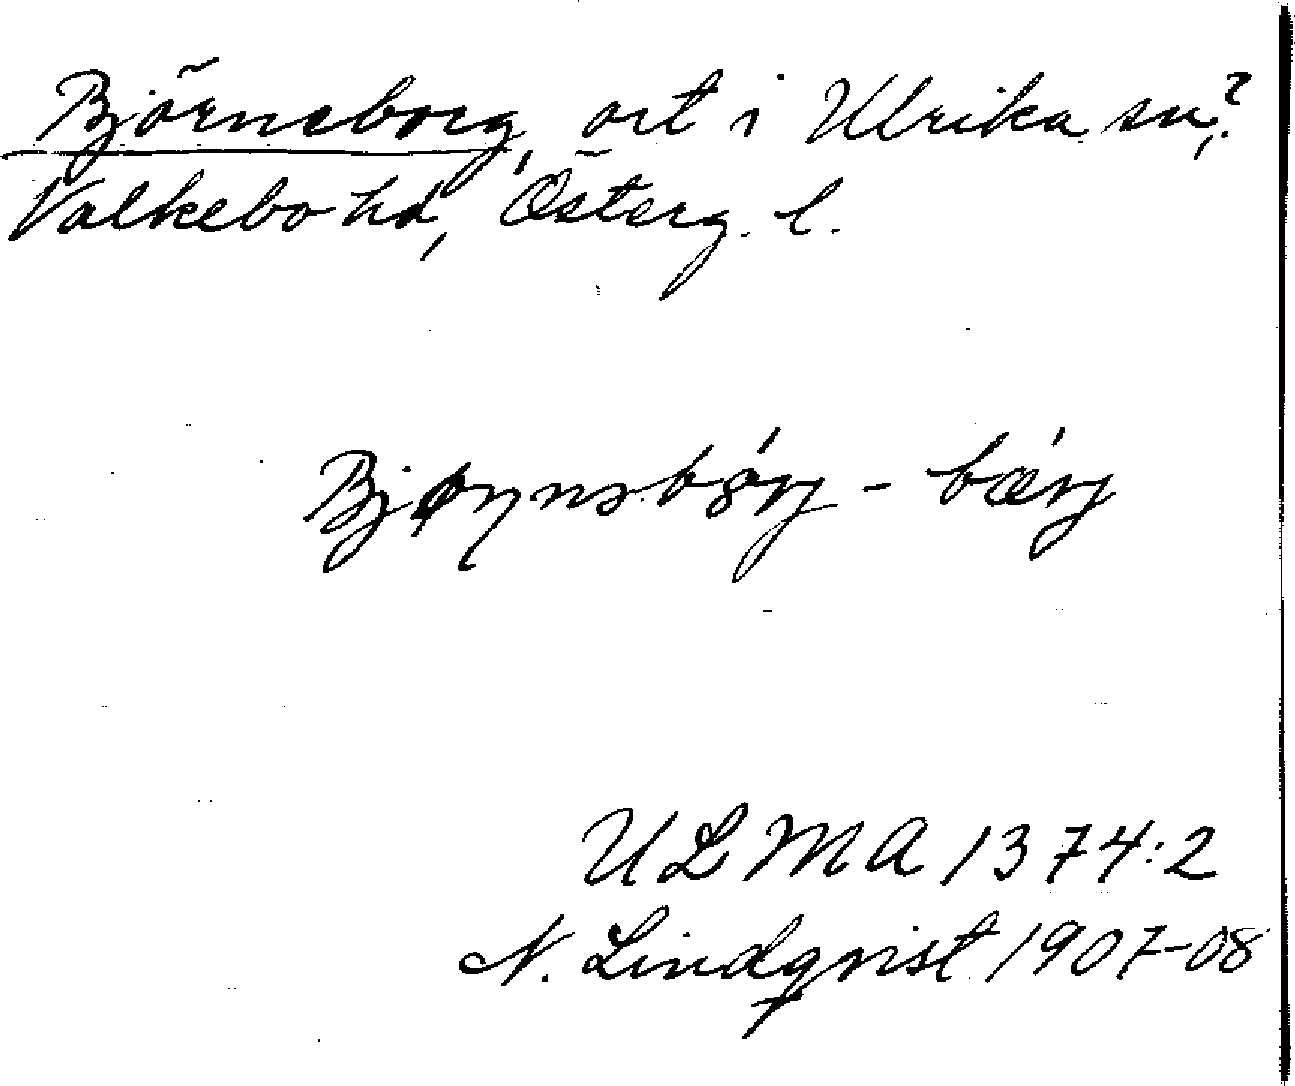 Björneborg, ort i Ulrika sn?,
Valkebo hd, Österg. l.
- bærj
ULMA 1374:2
N. Lindqvist 1907-08